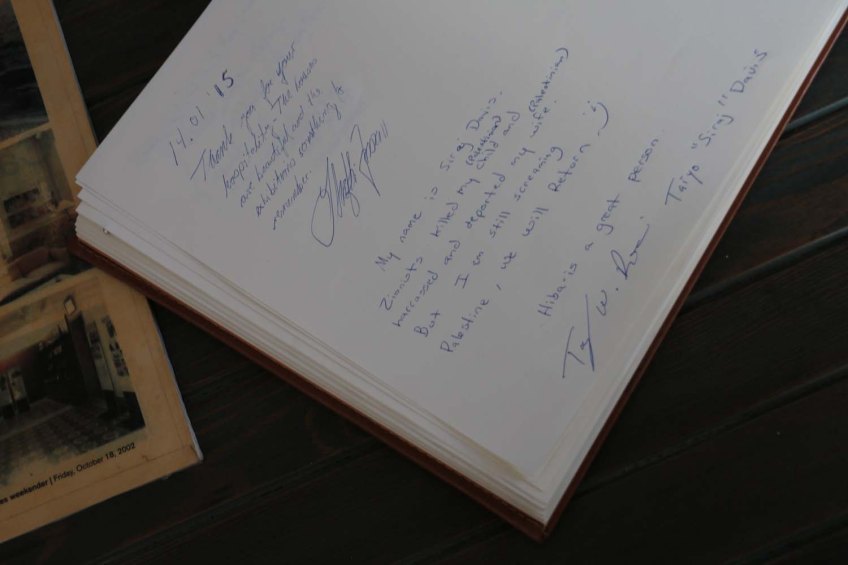 14.01 '15
Thank you for your
hospitality - The houses
are beautiful and the
exhibitions something to
remember.
My name is Siraj Davis.
Zionists killed my (Palestinian) child and
harrassed and deported my (Palestinian) wife.
But I am still screaming
Palestine, we will Return :)
Hiba is a great person.
Taiyo "Siraj" Davis
es weekender | Friday, October 18, 2002